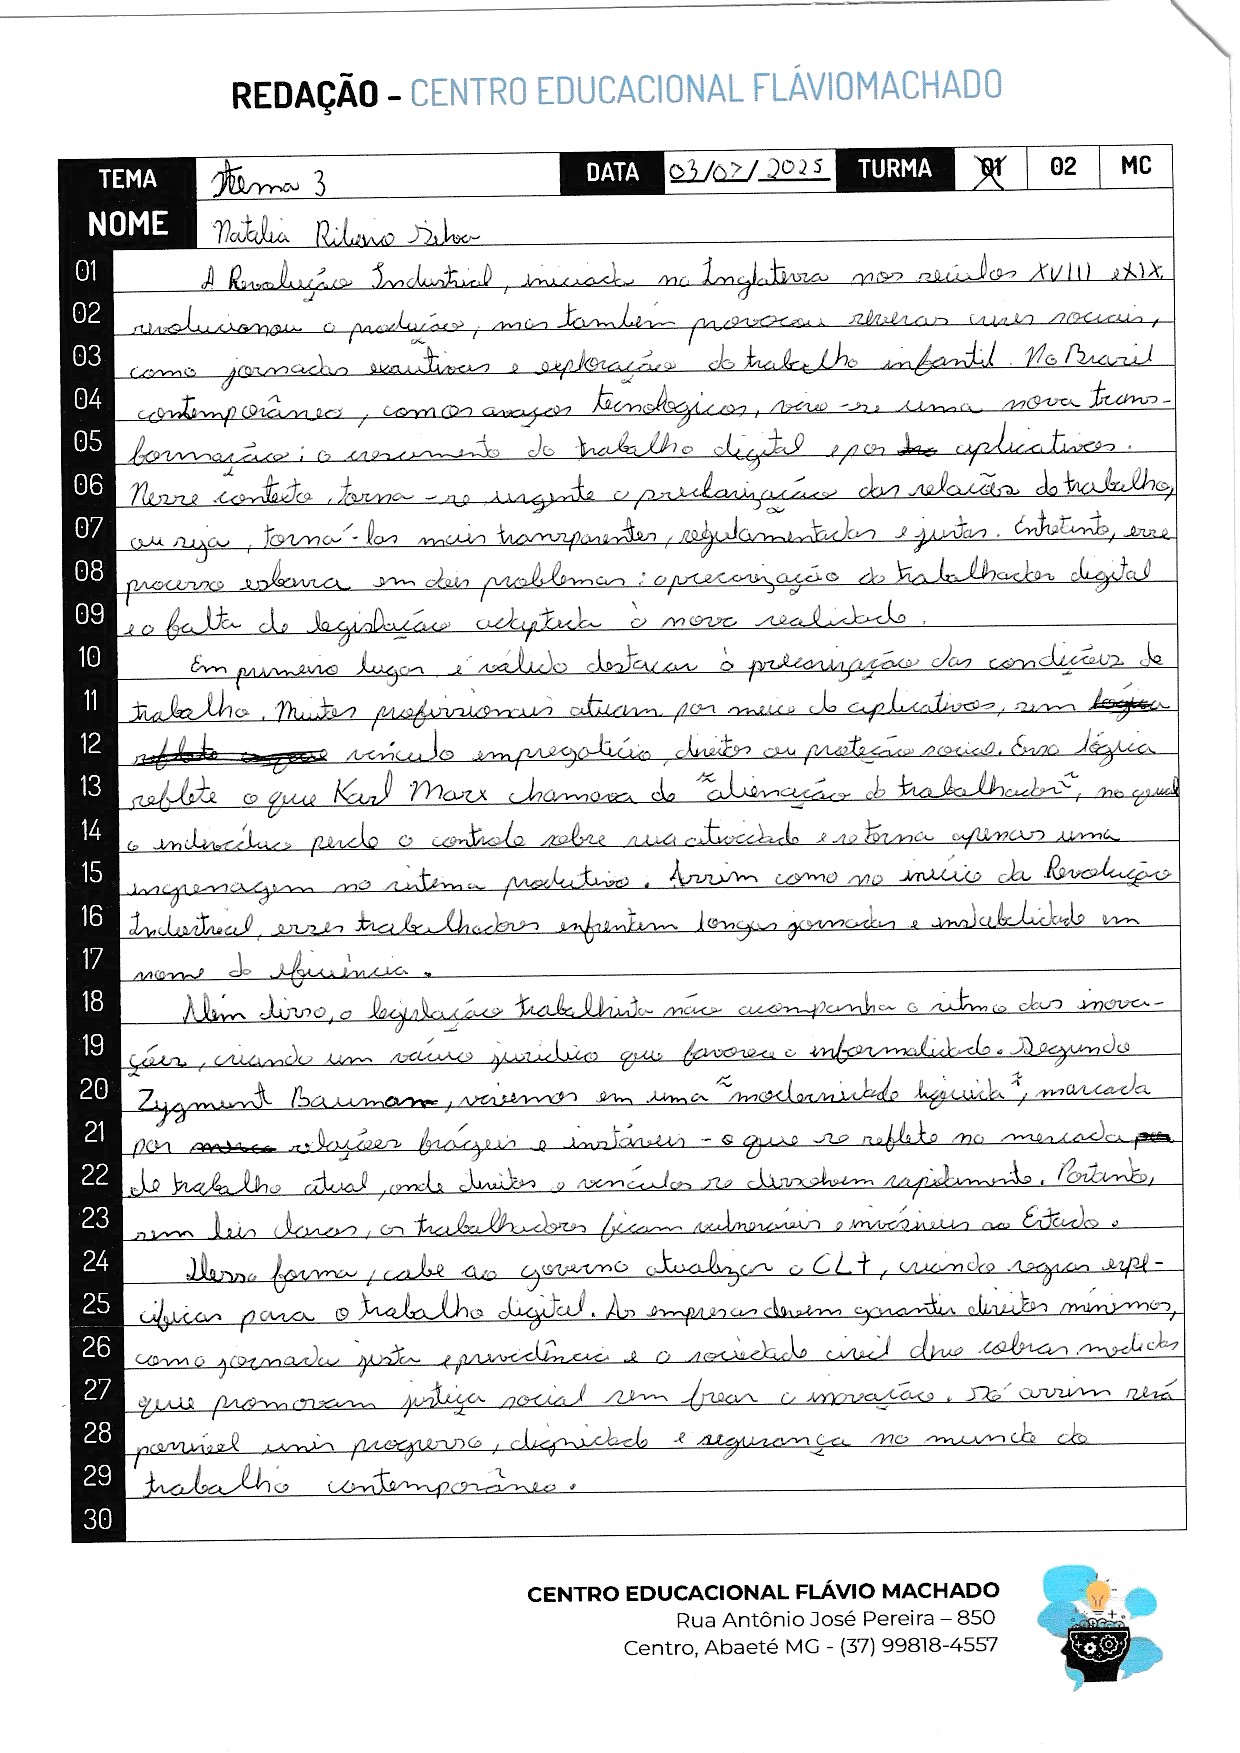 REDAÇÃO - CENTRO EDUCACIONAL FLÁVIOMACHADO
TEMA tema 3 DATA 03/07/2025 TURMA 01 02 MC
NOME Natalia Ribeiro Silva
01 A Revolução Industrial, iniciada na Inglaterra nos séculos XVIII e XIX
02 revolucionou a produção, mas também provocou severas crises sociais,
03 como jornadas exaustivas e exploração do trabalho infantil. No Brasil
04 contemporâneo, com os avaços tecnologicos, vive-se uma nova trans-
05 formação: o crescimento do trabalho digital e por aplicativos.
06 Nesse contexto, torna-se urgente a preclarização das relações do trabalho,
07 ou seja, torná-las mais transparentes, regulamentadas e justas. Entretinto, esse
08 processo esbarra em dois problemas: a precarização do trabalhador digital
09 e a falta de legislação adaptada à nova realidade.
10 Em primeiro lugar, é válido destacar a precarização das condições de
11 trabalho. Muitos profissionais atuam por meio de aplicativos, sem
12 vínculo empregatício, direitos ou proteção social. Essa lógica
13 reflete o que Karl Marx chamava de "alienação do trabalhador", na qual
14 o indivíduo perde o controle sobre sua atividade e se torna apenas uma
15 engrenagem no sistema produtivo. Assim como no início da Revolução
16 Industrial, esses trabalhadores enfrentam longas jornadas e instabilidade em
17 nome da eficiência.
18 Além disso, a legislação trabalhista não acompanha o ritmo das inova-
19 ções, criando um vácuo jurídico que favorece a informalidade. Segundo
20 Zygmunt Bauman, vivemos em uma "modernidade líquida", marcada
21 por relações frágeis e instáveis - o que se reflete no mercado
22 de trabalho atual, onde direitos e vínculos se dissolvem rapidamente. Portanto,
23 sem leis claras, os trabalhadores ficam vulneráveis e invisíveis ao Estado.
24 Dessa forma, cabe ao governo atualizar a CLT, criando regras espe-
25 cíficas para o trabalho digital. As empresas devem garantir direitos mínimos,
26 como jornada justa e previdência e a sociedade civil deve cobrar medidas
27 que promovam justiça social sem frear a inovação. Só assim será
28 possível unir progresso, dignidade e segurança no mundo do
29 trabalho contemporâneo.
30
CENTRO EDUCACIONAL FLÁVIO MACHADO
Rua Antônio José Pereira – 850
Centro, Abaeté MG - (37) 99818-4557